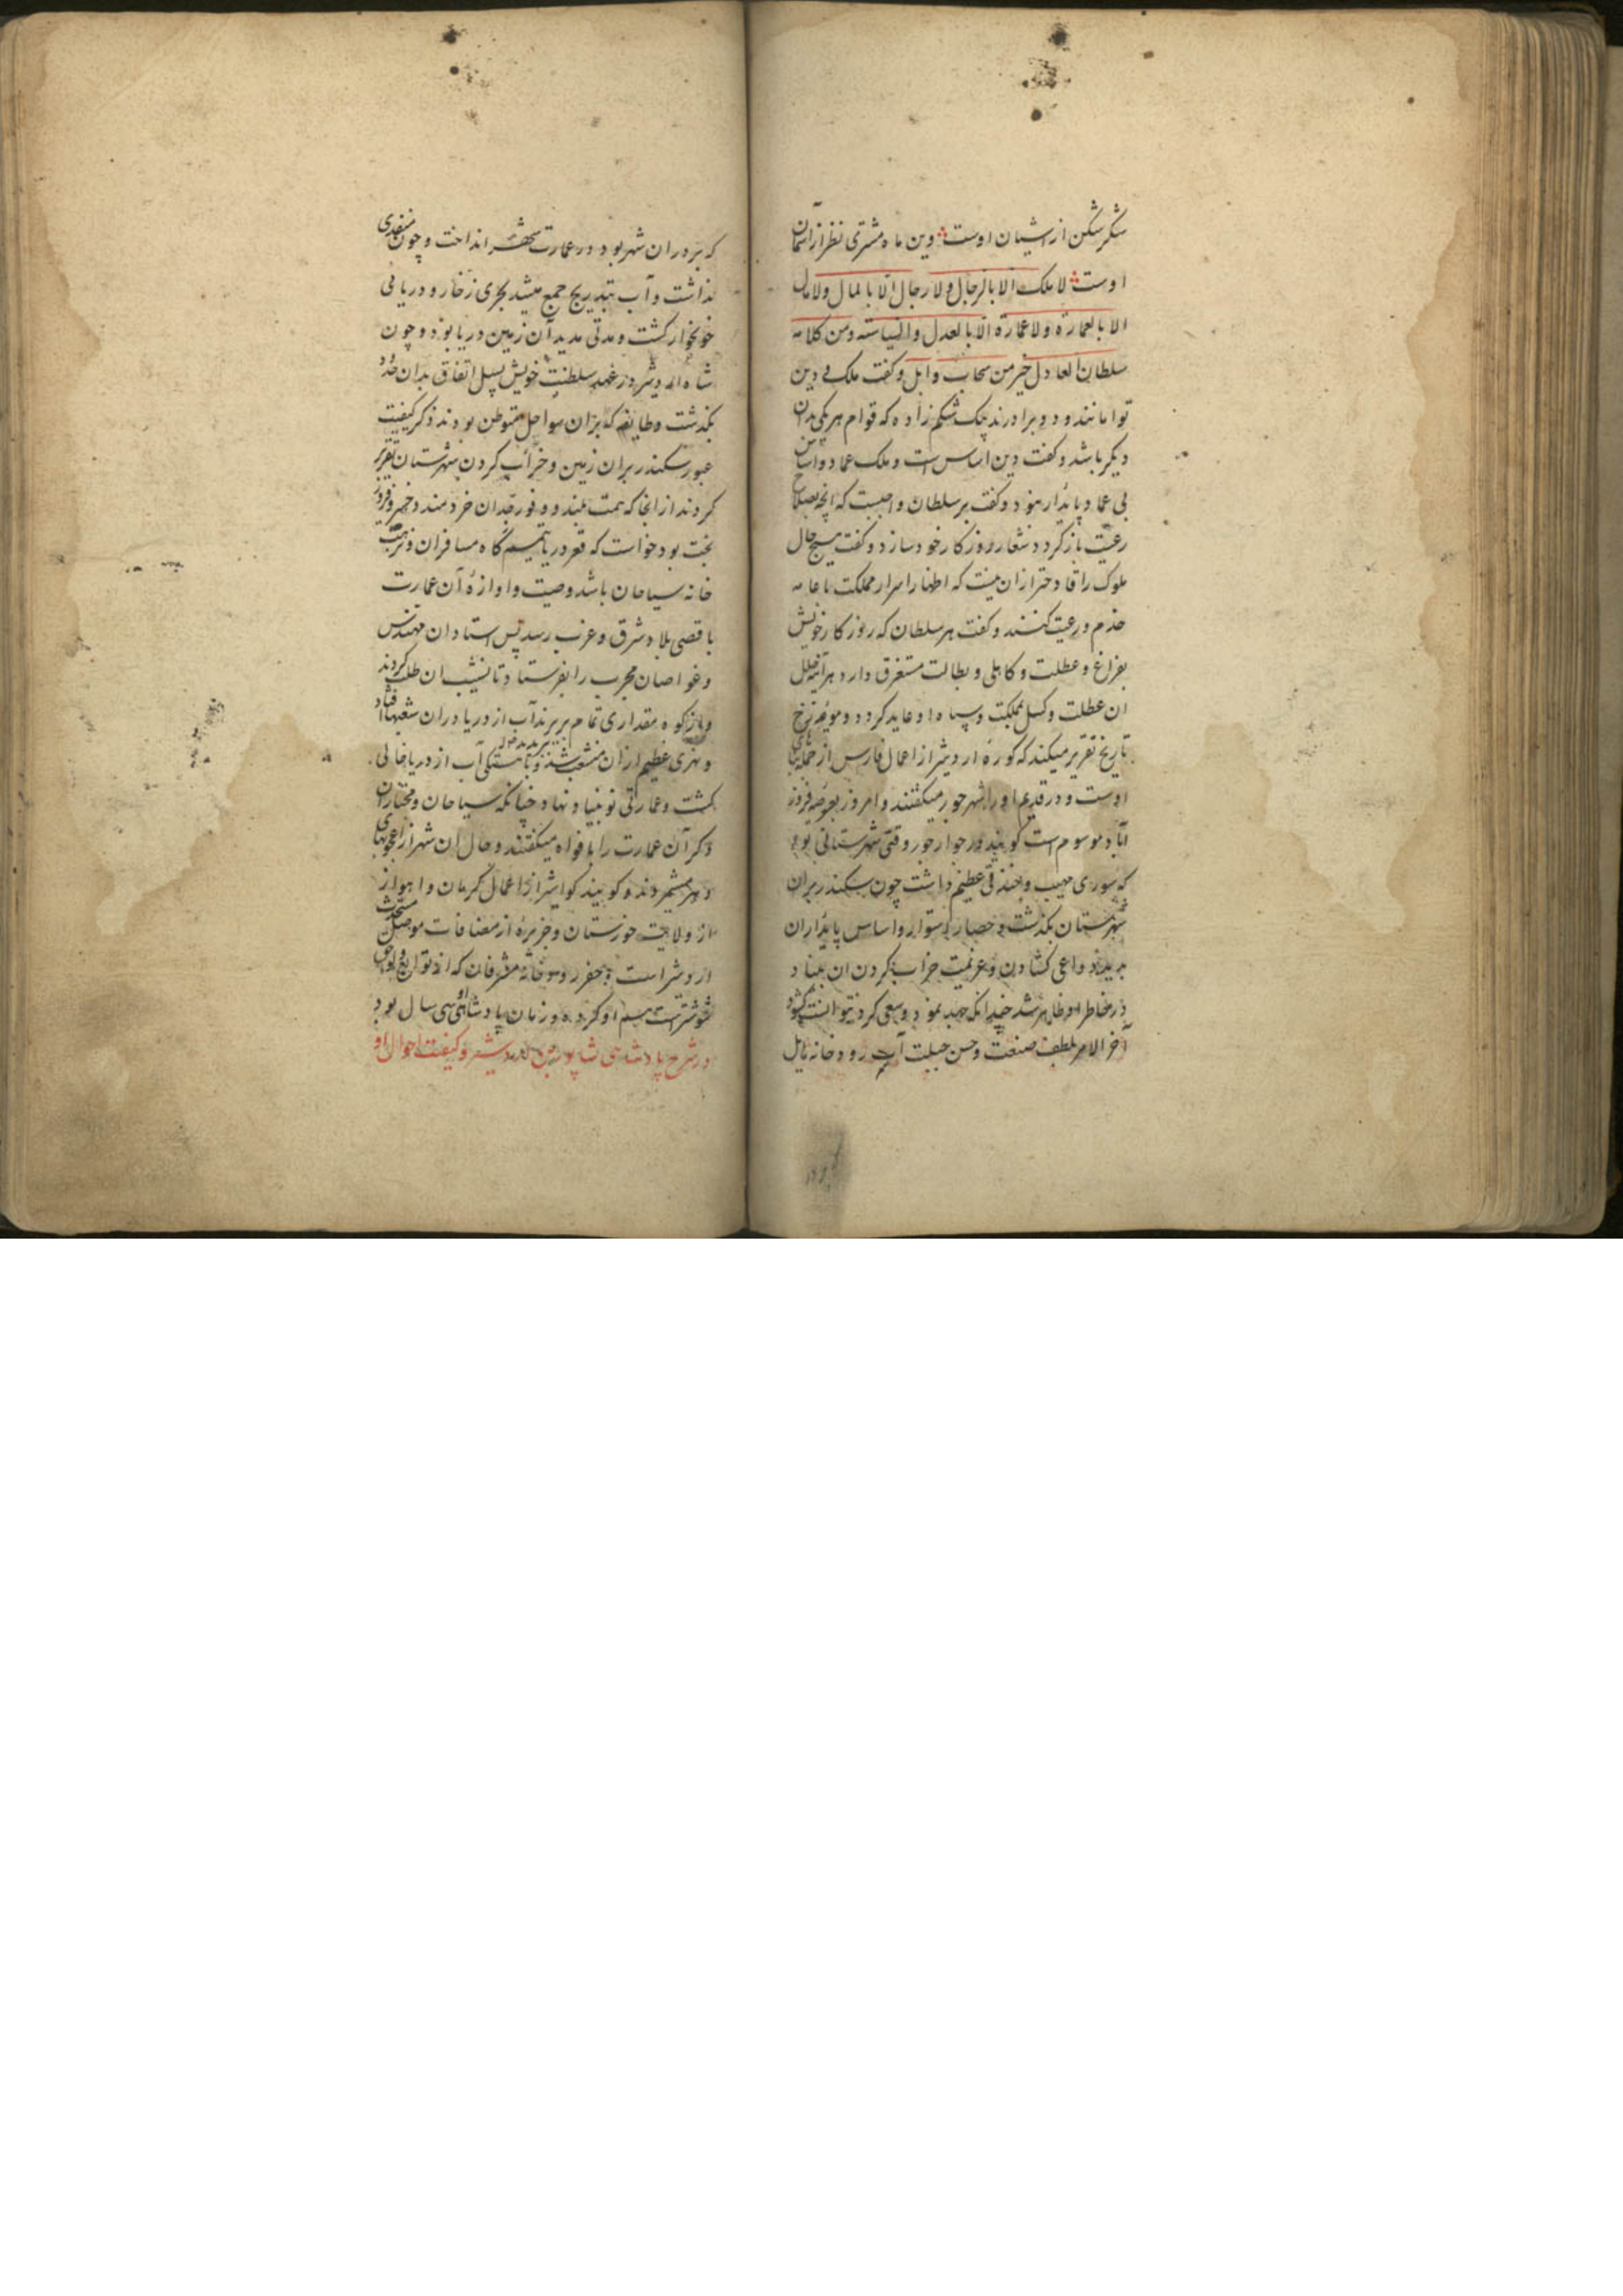 شکر شکن از اشیان اوست وین ماه مشتری نظر از آسمان
اوست لا ملک الا بالرجال ولا رجال الا بالمال ولا مال
الا بالعمارة ولا عمارة الا بالعدل والسیاسته ومن کلامه
سلطان العادل خیر من سحاب وابل وکفت ملک و دین
توامانند و دو برادرند بیک شکم زاده که قوام هر یکی بدان
دیکر باشد و کفت دین اساس است و ملک عماد و اساس
بی عماد پایدار نبود و کفت بر سلطان واجبست که آنچه بصلاح
رعیت بازکردد شعار روزکار خود سازد و کفت هیچ حال
ملوک را قادحتر ازان نیست که اظهار اسرار مملکت با عامه
خدم و رعیت کنند و کفت هر سلطان که روزکار خویش
بفراغ و عطلت و کاهلی و بطالت مستغرق دارد هر آینه خلل
ان عطلت و کسل بمملکت و سپاه او عاید کردد و مورخ
تاریخ تقریر میکند که کوره اردشیر از اعمال فارس از جمله بناهای
اوست و در قدیم او را شهر جور میکفتند و امروز بعرضه فیروز
آباد موسوم است کویند در جوار جور وقتی شهرستانی بود
که سوری مهیب و خندقی عظیم داشت چون سکندر بران
شهرستان بکذشت و حصار استوار و اساس پایدار ان
بدید دواعی کشادن و عزیمت خراب کردن ان بنیاد
در خاطر او ظاهر شد چندانکه جهد نمود و سعی کرد نتوانست کشود
آخر الامر بلطف صنعت و حسن حیلت آب رودخانه یایل
که بر دران شهر بود در عمارت شهر انداخت و چون منفذی
نداشت و آب بتدریج جمع میشد بحری زخار و دریائی
خونخوار کشت و مدتی مدید آن زمین دریا بود و چون
شاه اردشیر در عهد سلطنت خویش بسبیل اتفاق بدان حدود
بکذشت و طایفه که بران سواحل متوطن بودند ذکر کیفیت
عبور سکندر بران زمین و خراب کردن شهرستان تقریر
کردند از انجا که همت بلند و وفور خردمند و فیروز
بخت بود خواست که قعر دریا مقیم کاه مسافران و
خانه سیاحان باشد و صیت و اوازه آن عمارت
باقصی بلاد شرق و غرب رسد پس استادان مهندس
و غواصان مجرب را بفرستاد تا نشیب ان طلب کردند
و از کوه مقداری تمام ببریدند آب از دریا دران شعبها افتاد
و نهری عظیم ازان منشعب شد و باهستکی آب از دریا خالی
کشت و عمارتی نو بنیاد نهاد چنانکه سیاحان و مختاران
ذکر آن عمارت را بافواه میکفتند و حال ان شهر از اعجوبهای
دهر میشمردند و کویند کواشیر از اعمال کرمان و اهواز
از ولایت خوزستان و جزیره از مضافات موصل مستحدث
اردشیر است و حفر رودخانه مشرقان که از توابع و لواحق
شوشترست هم او کرده و زمان پادشاهی او سی سال بود
در شرح پادشاهی شاپور بن اردشیر و کیفیت احوال او